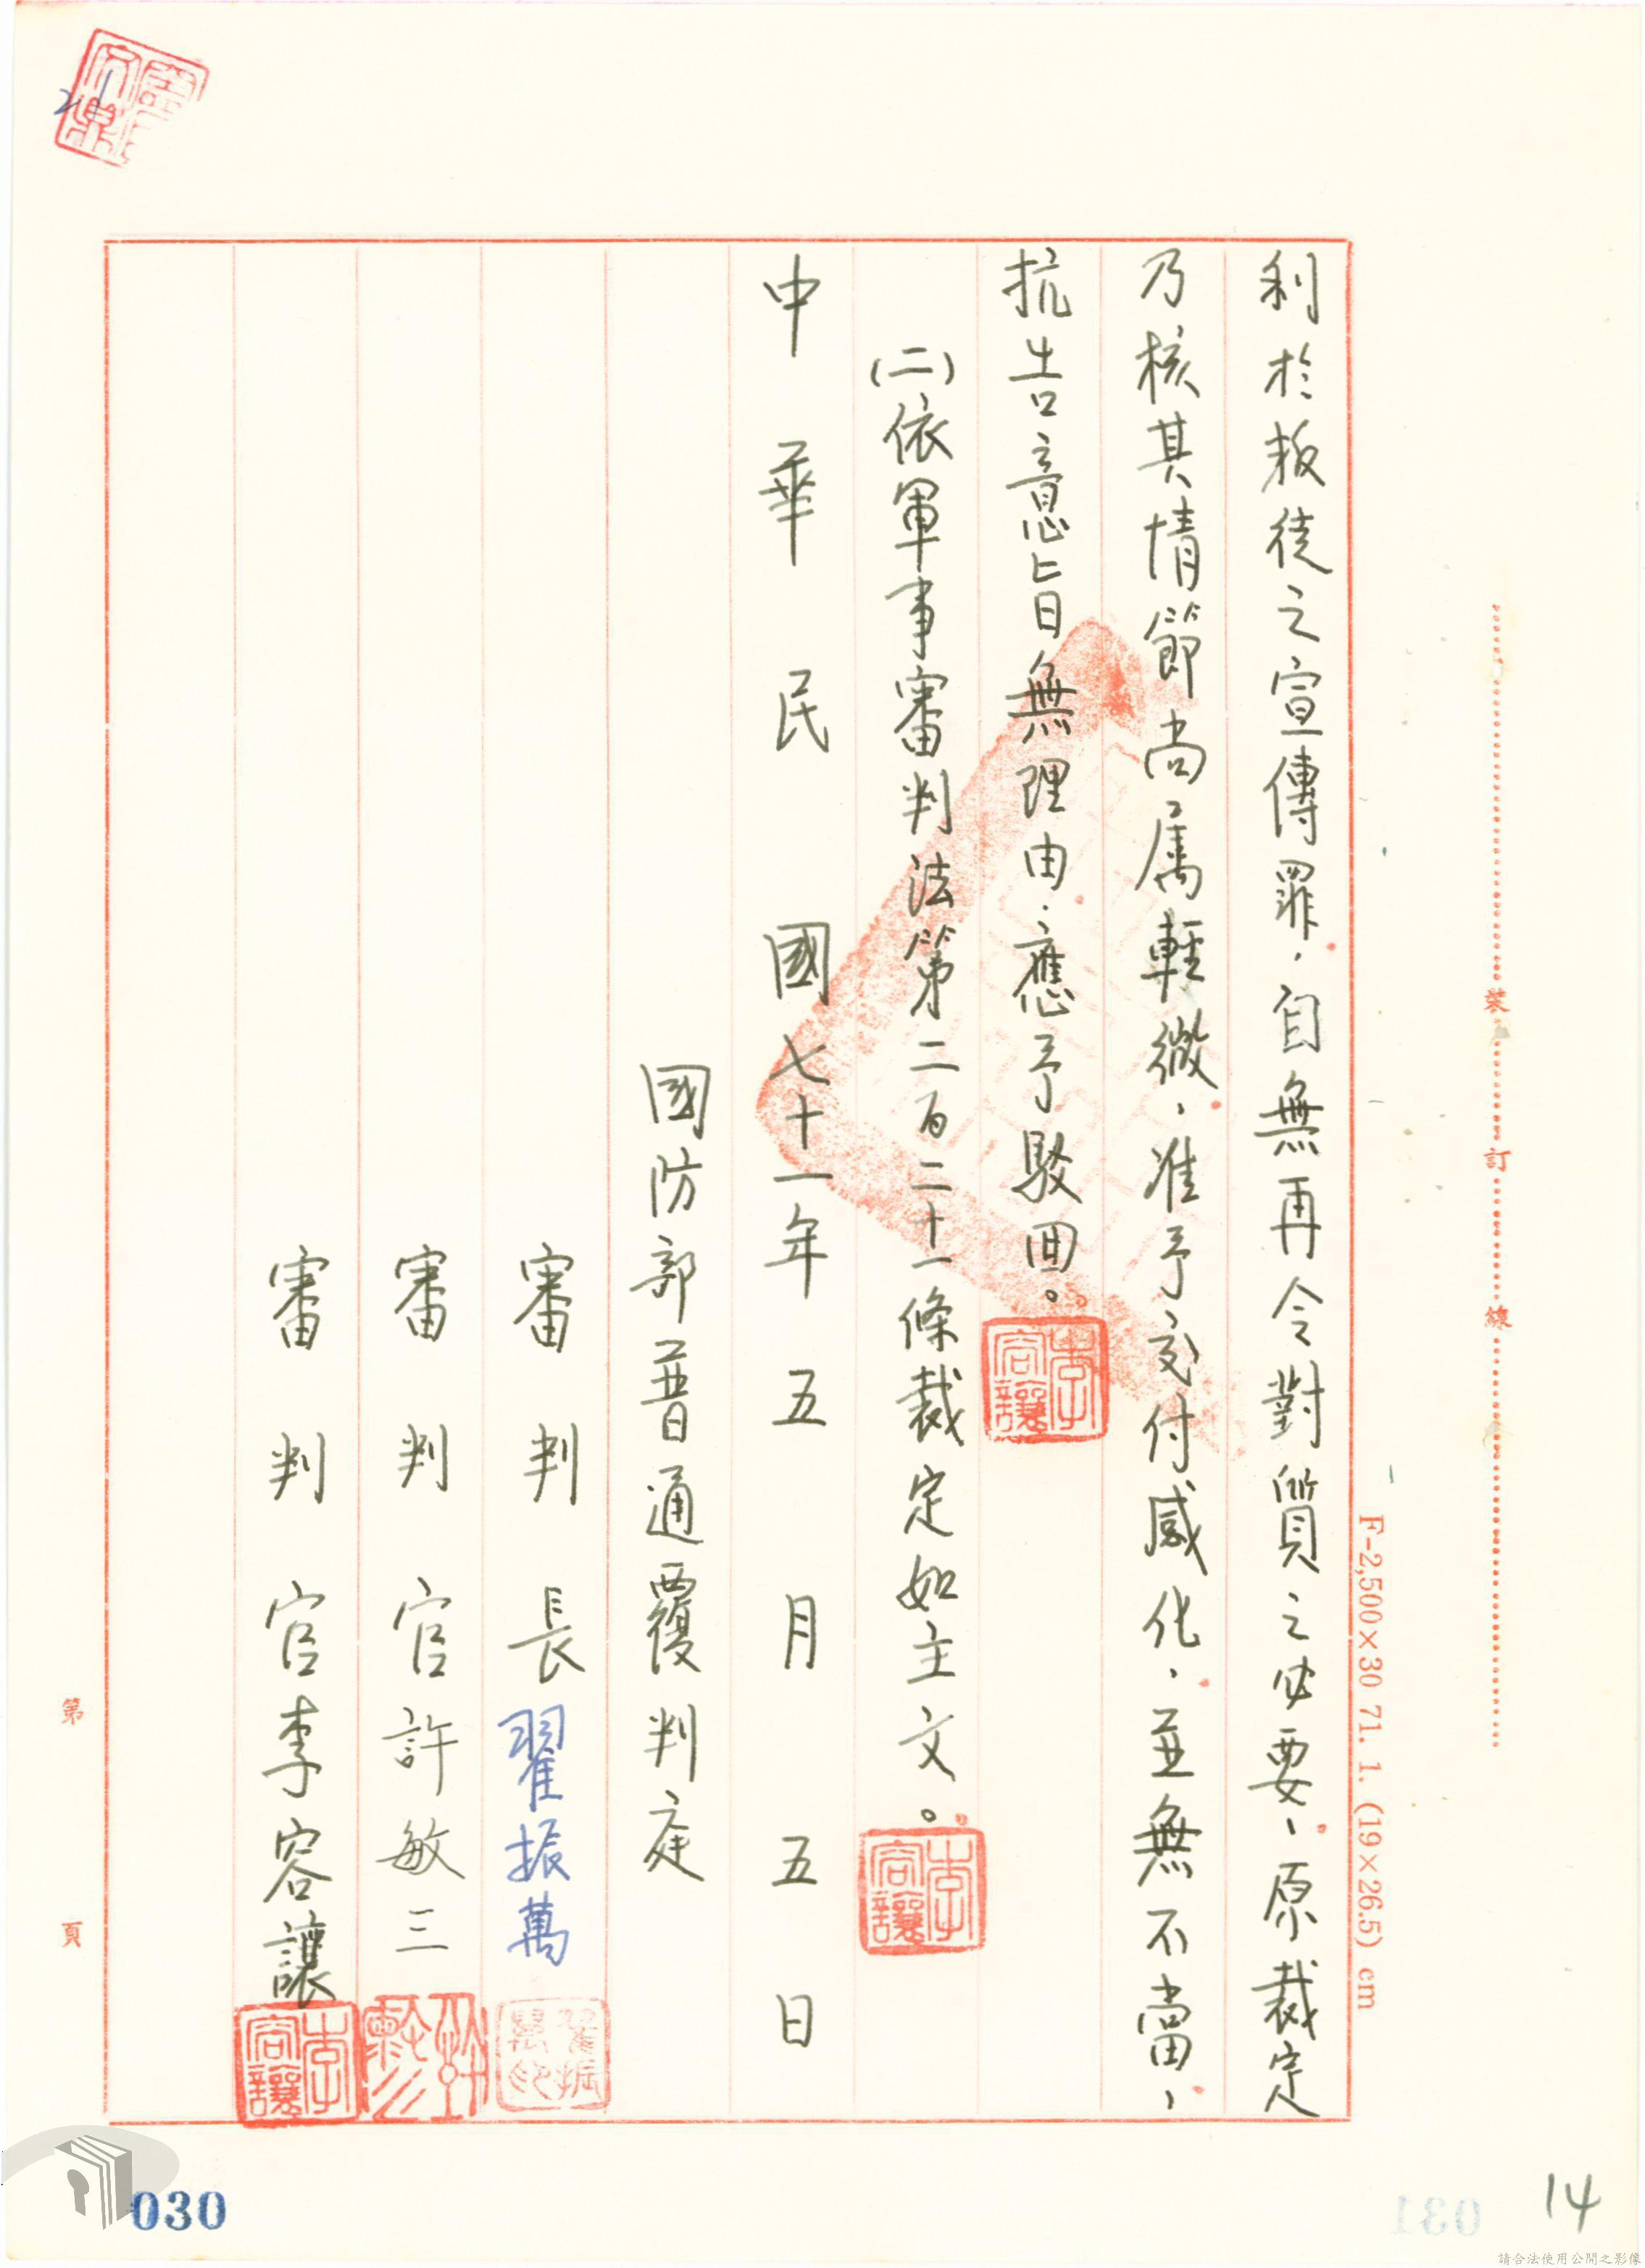 利於叛徒之宣傳罪，自無再令對質之必要，原裁定
乃核其情節尚屬輕微，准予交付感化，並無不當，
抗告意旨無理由，應予駁回。
李容讓
(二)依軍事審判法第二百二十一條裁定如主文。
李容讓
中華民國七十一年五月五日
國防部普通覆判庭
審判長翟振萬
翟振萬印
審判官許敏三
審判官李容讓
李容讓
裝訂線
F-2,500×30 71. 1. (19×26.5) cm
第頁
030
031
14
請合法使用公開之影像